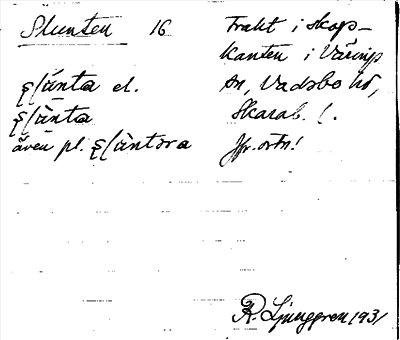 Slunten 16
ʂḷùnta el.
ʂḷùnta
även pl. ʂḷùntəra
Trakt i skogs-
kanten i Värings
sn, Vadsbo hd,
Skarab. l.
Jfr. ortn!
R. Ljunggren 1931